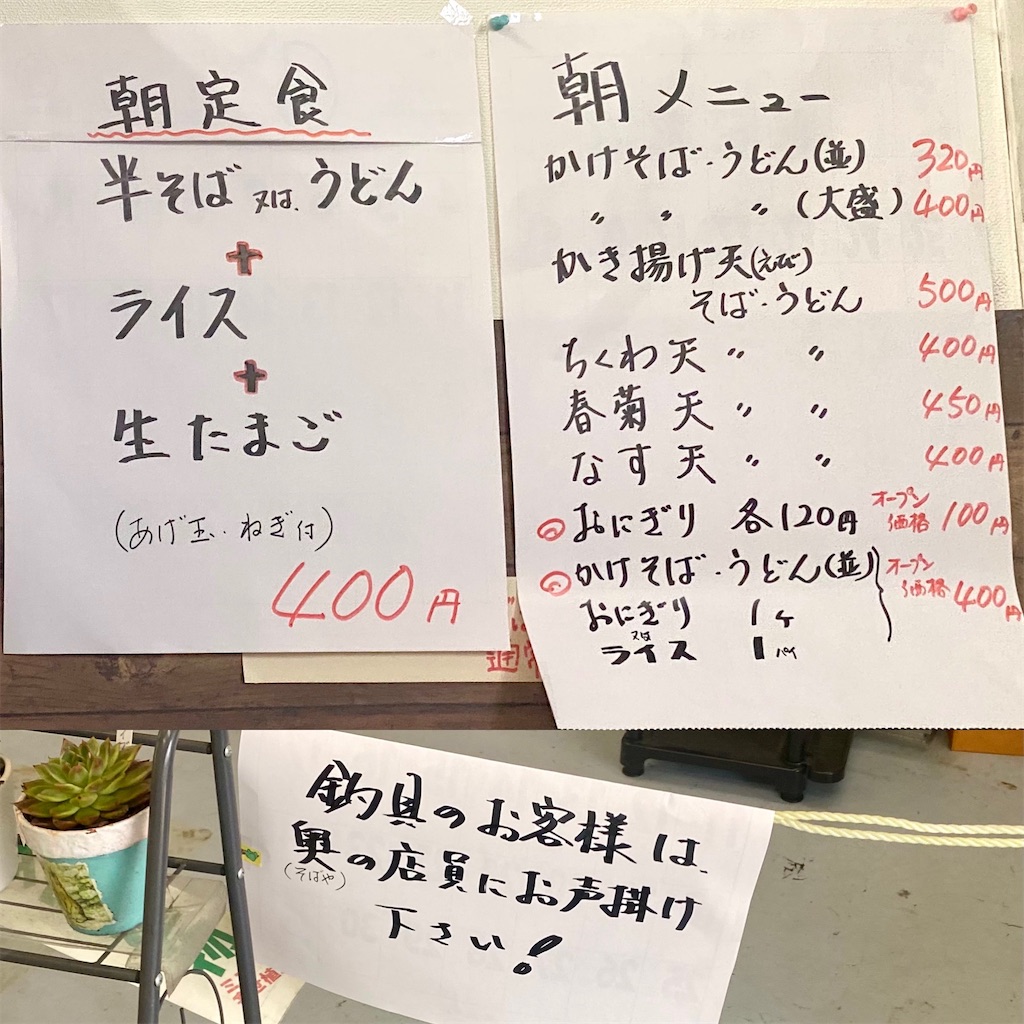 朝定食
半そば又は、うどん
+
ライス
+
生たまご
(あげ玉、ねぎ付)
400円
朝メニュー
かけそば・うどん(並) 320円
〃 〃 〃 (大盛) 400円
かき揚げ天(えび)
そば・うどん 500円
ちくわ天 〃 〃 400円
春菊天 〃 〃 450円
なす天 〃 〃 400円
おにぎり 各120円 オープン価格 100円
かけそば・うどん(並) オープン価格 400円
おにぎり 1ケ
又は
ライス 1パイ
釣具のお客様は、
奥の店員にお声掛け
(そばや)
下さい!